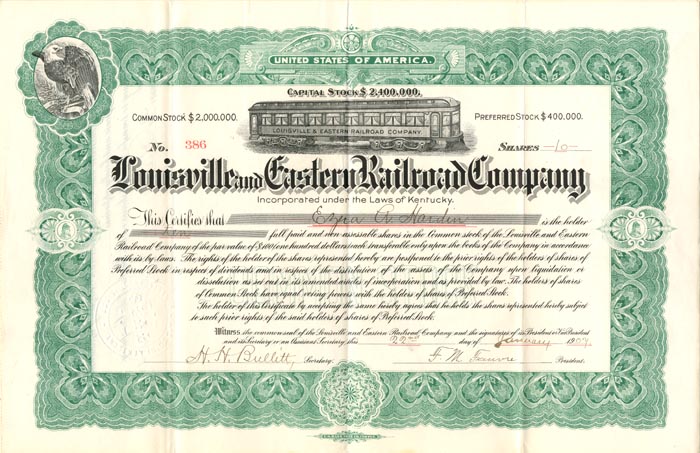 UNITED STATES OF AMERICA.
CAPITAL STOCK $2,400,000.
COMMON STOCK $2,000,000.
PREFERRED STOCK $400,000.
LOUISVILLE & EASTERN RAILROAD COMPANY
No. 386
SHARES -10-
Louisville and Eastern Railroad Company
Incorporated under the Laws of Kentucky.
This Certifies that Ezra A. Hardin is the holder
of Ten full paid and non assessable shares in the Common stock of the Louisville and Eastern
Railroad Company of the par value of $100 (one hundred dollars) each transferable only upon the books of the Company in accordance
with its by laws. The rights of the holder of the shares represented hereby are postponed to the prior rights of the holders of shares of
Preferred Stock in respect of dividends and in respect of the distribution of the assets of the Company upon liquidation or
dissolution as set out in its amended articles of incorporation and as provided by law. The holders of shares
of Common Stock have equal voting powers with the holders of shares of Preferred Stock.
The holder of this Certificate by accepting the same hereby agrees that he holds the shares represented hereby subject
to such prior rights of the said holders of shares of Preferred Stock.
Witness the common seal of the Louisville and Eastern Railroad Company and the signatures of its President or Vice President
and its Secretary or an Assistant Secretary this 22nd day of January 1907.
H. H. Bullitt, Secretary.
F. M. President.